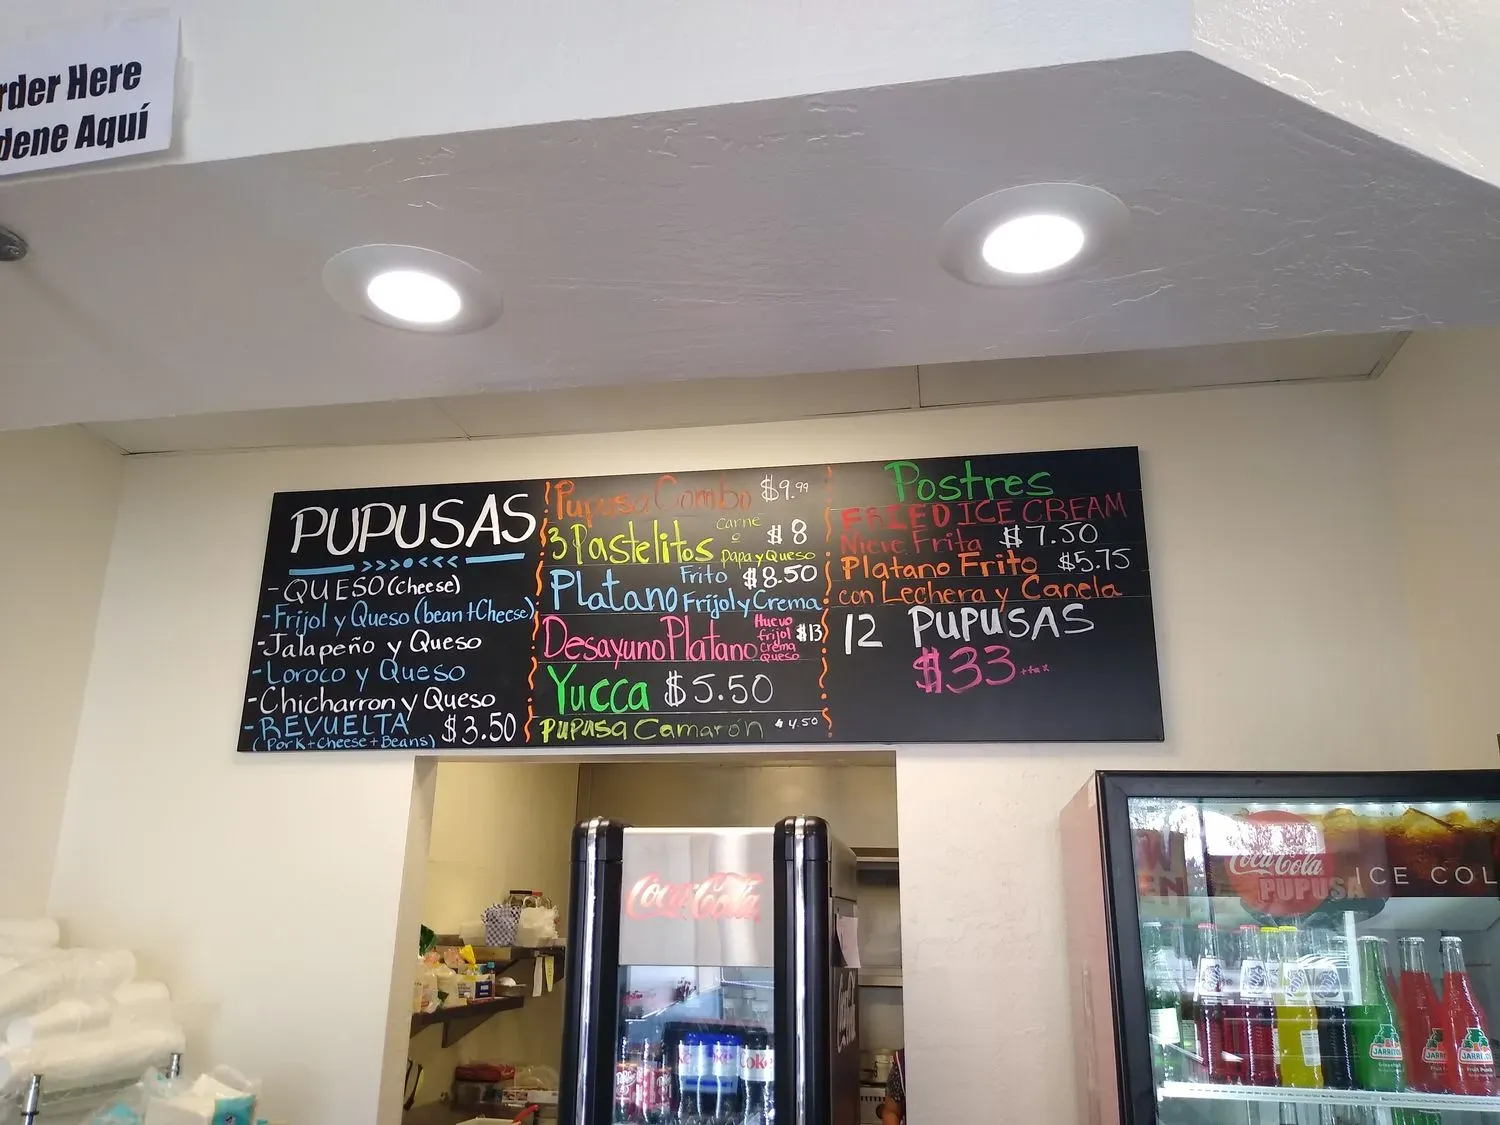 rder Here
dene Aquí
PUPUSAS
- QUESO (Cheese)
- Frijol y Queso (bean + Cheese)
- Jalapeño y Queso
- Loroco y Queso
- Chicharron y Queso
- REVUELTA $3.50
(Pork + Cheese + Beans)
Pupusa Combo $9.99
3 Pastelitos Carne o Papa y Queso $8
Platano Frito $8.50
Frijol y Crema
Desayuno Platano Huevo frijol Crema Queso $13
Yucca $5.50
PUPUSA Camarón $4.50
Postres
FRIED ICE CREAM
Nieve Frita $7.50
Platano Frito $5.75
con Lechera y Canela
12 PUPUSAS
$33 +tax
Coca-Cola
Coca-Cola
PUPUSA
ICE COL
Coke
JARRITOS